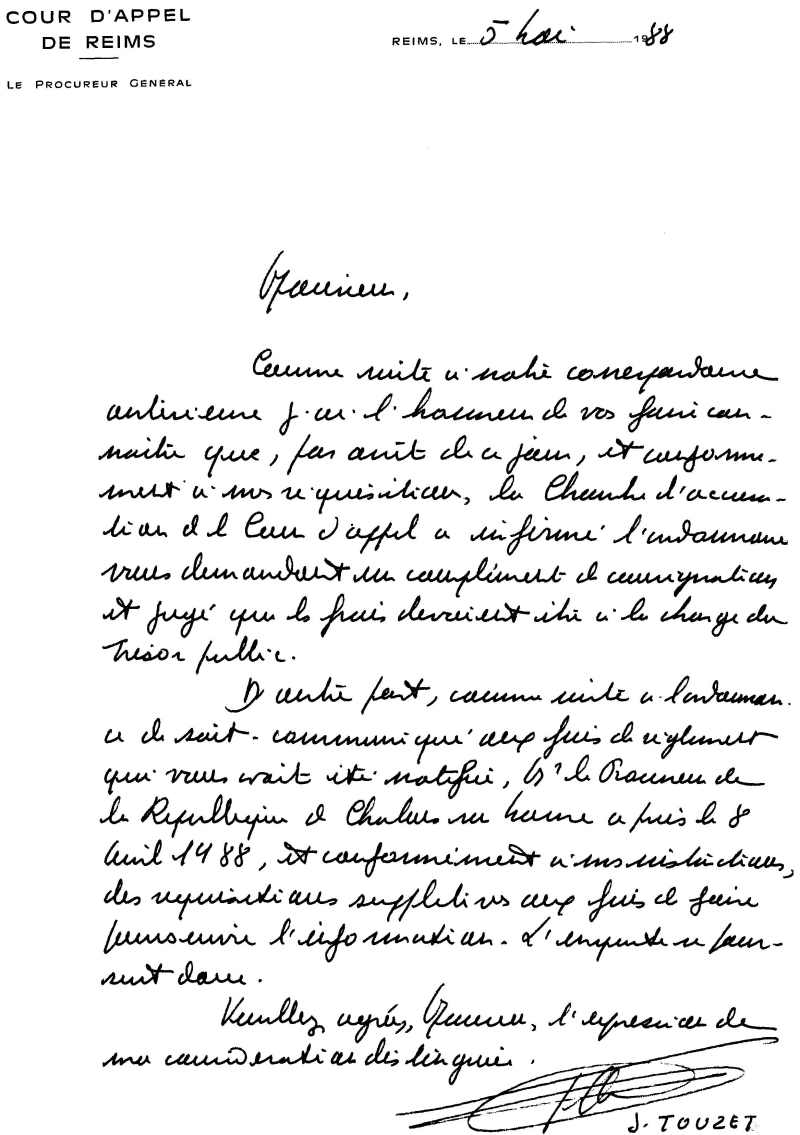 COUR D'APPEL
DE REIMS
LE PROCUREUR GENERAL
REIMS, LE 5 Mai 1988
Monsieur,
Comme suite à notre correspondance
antérieure j'ai l'honneur de vos faire con-
naître que, par arrêt de ce jour, et conformé-
ment à mes réquisitions, la Chambre d'accusa-
tion de la Cour d'appel a infirmé l'ordonnance
vous demandant un complément de consignation
et jugé que les frais devraient être à la charge du
Trésor public.
D'autre part, comme suite à l'ordonnan-
ce de soit-communiqué aux fins de règlement
qui vous avait été notifiée, Mr le Procureur de
la République de Chalons sur Marne a pris le 8
Avril 1988, et conformément à mes instructions,
des réquisitions supplétives aux fins de faire
poursuivre l'information. L'enquête se pour-
suit donc.
Veuillez agréer, Monsieur, l'expression de
ma considération distinguée.
J. TOUZET